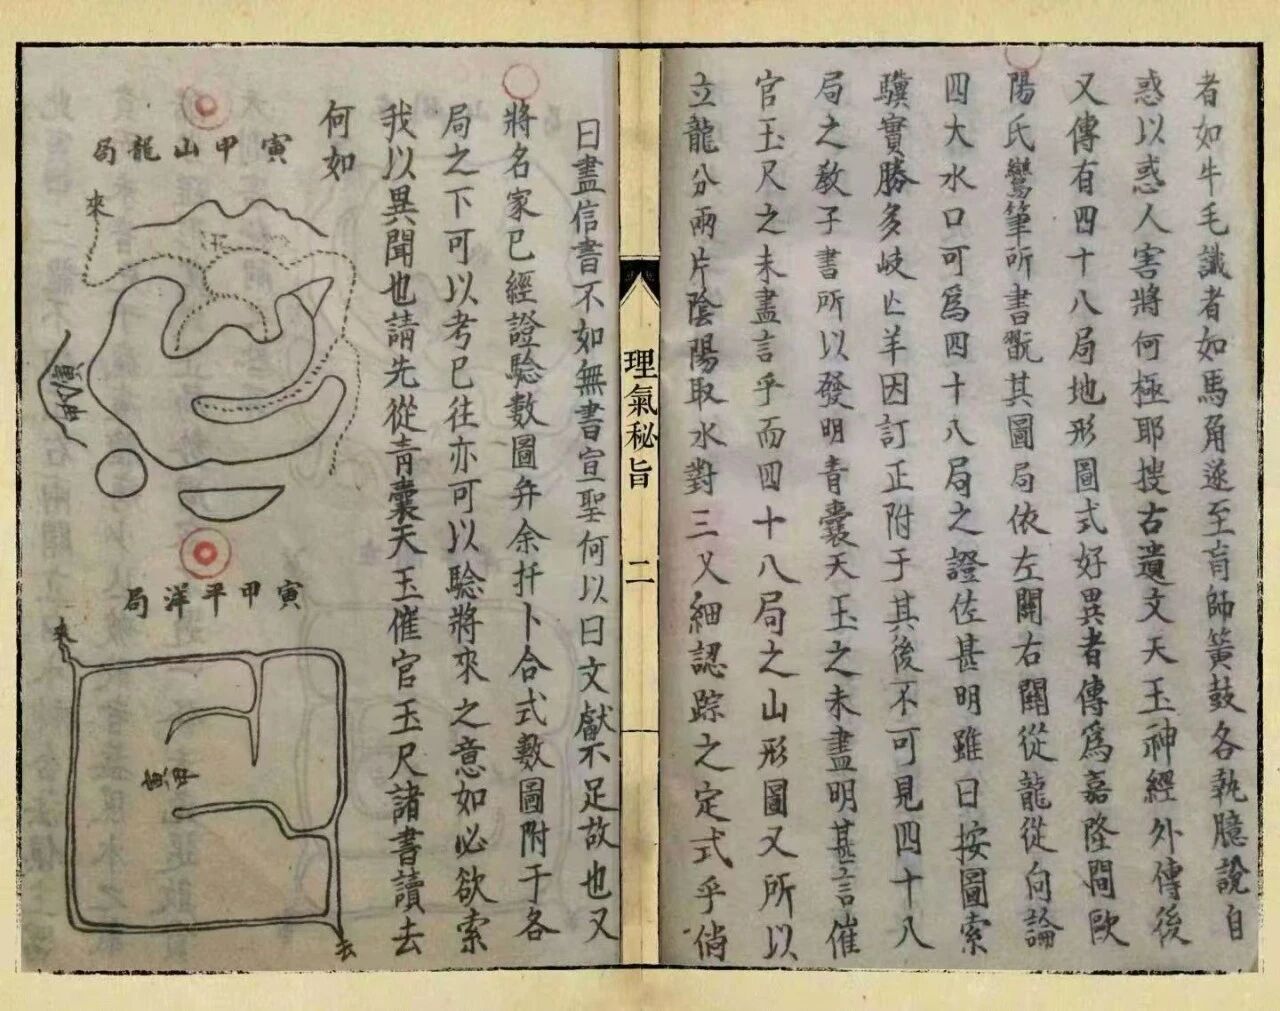 者如牛毛識者如馬角遂至盲師簧鼓各執臆說自
惑以惑人害將何極耶搜古遺文天玉神經外傳後
又傳有四十八局地形圖式好異者傳爲嘉隆間歐
陽氏鸞筆所書翫其圖局依左關右關從龍從向論
四大水口可爲四十八局之證佐甚明雖曰按圖索
驥實勝多岐亡羊因訂正附于其後不可見四十八
局之教子書所以發明青囊天玉之未盡明甚言催
官玉尺之未盡言乎而四十八局之山形圖又所以
立龍分兩片陰陽取水對三叉細認踪之定式乎倘
理氣秘旨 二
曰盡信書不如無書宣聖何以曰文獻不足故也又
將名家已經證驗數圖弁余扦卜合式數圖附于各
局之下可以考已往亦可以驗將來之意如必欲索
我以異聞也請先從青囊天玉催官玉尺諸書讀去
何如
寅甲山龍局
來
寅甲
寅甲平洋局
來
去